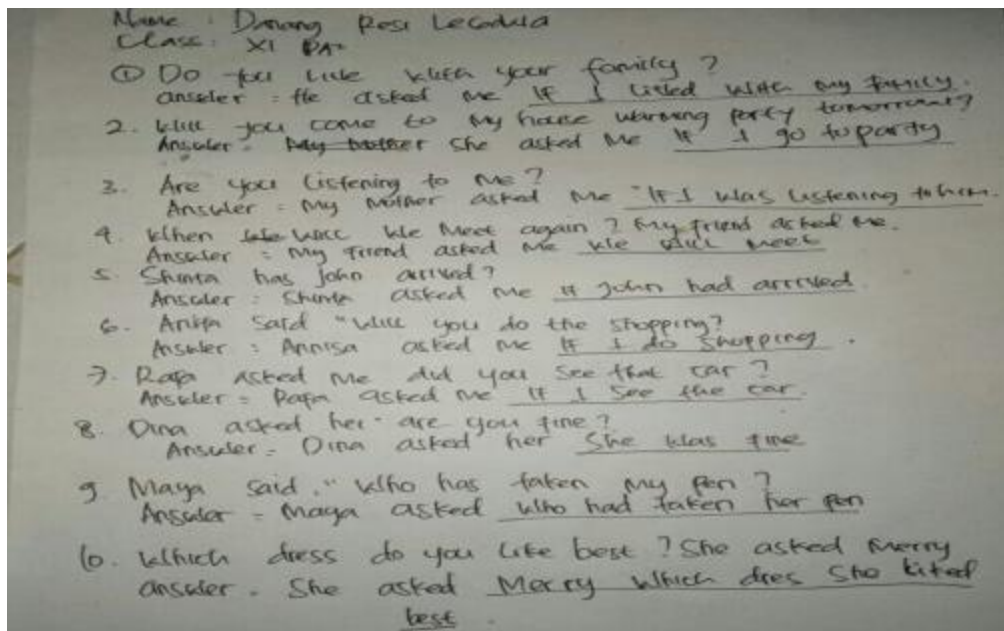 Name : Danang Rosi Lecadula
Class : XI PA
① Do you live with your family ?
answer = He asked me If I lived with my family.
2. Will you come to my house warming party tomorrow ?
Answer = My brother she asked me If I go to party
3. Are you listening to me ?
Answer = My mother asked me "If I was listening to him.
4. When will we meet again ? My friend asked me.
Answer = My friend asked me we will meet
5. Shinta has john arrived ?
Answer : Shinta asked me if John had arrived
6. said "Will you do the shopping ?
Answer : Annisa asked me If I do shopping .
7. Rafa asked me did you see that car ?
Answer = Rafa asked me If I see the car.
8. Dina asked her are you fine ?
Answer = Dina asked her She was fine
9 Maya said. "Who has taken my pen ?
Answer = Maya asked who had taken her pen
10. Which dress do you like best ? She asked Merry
answer = She asked Merry which dres She liked
best